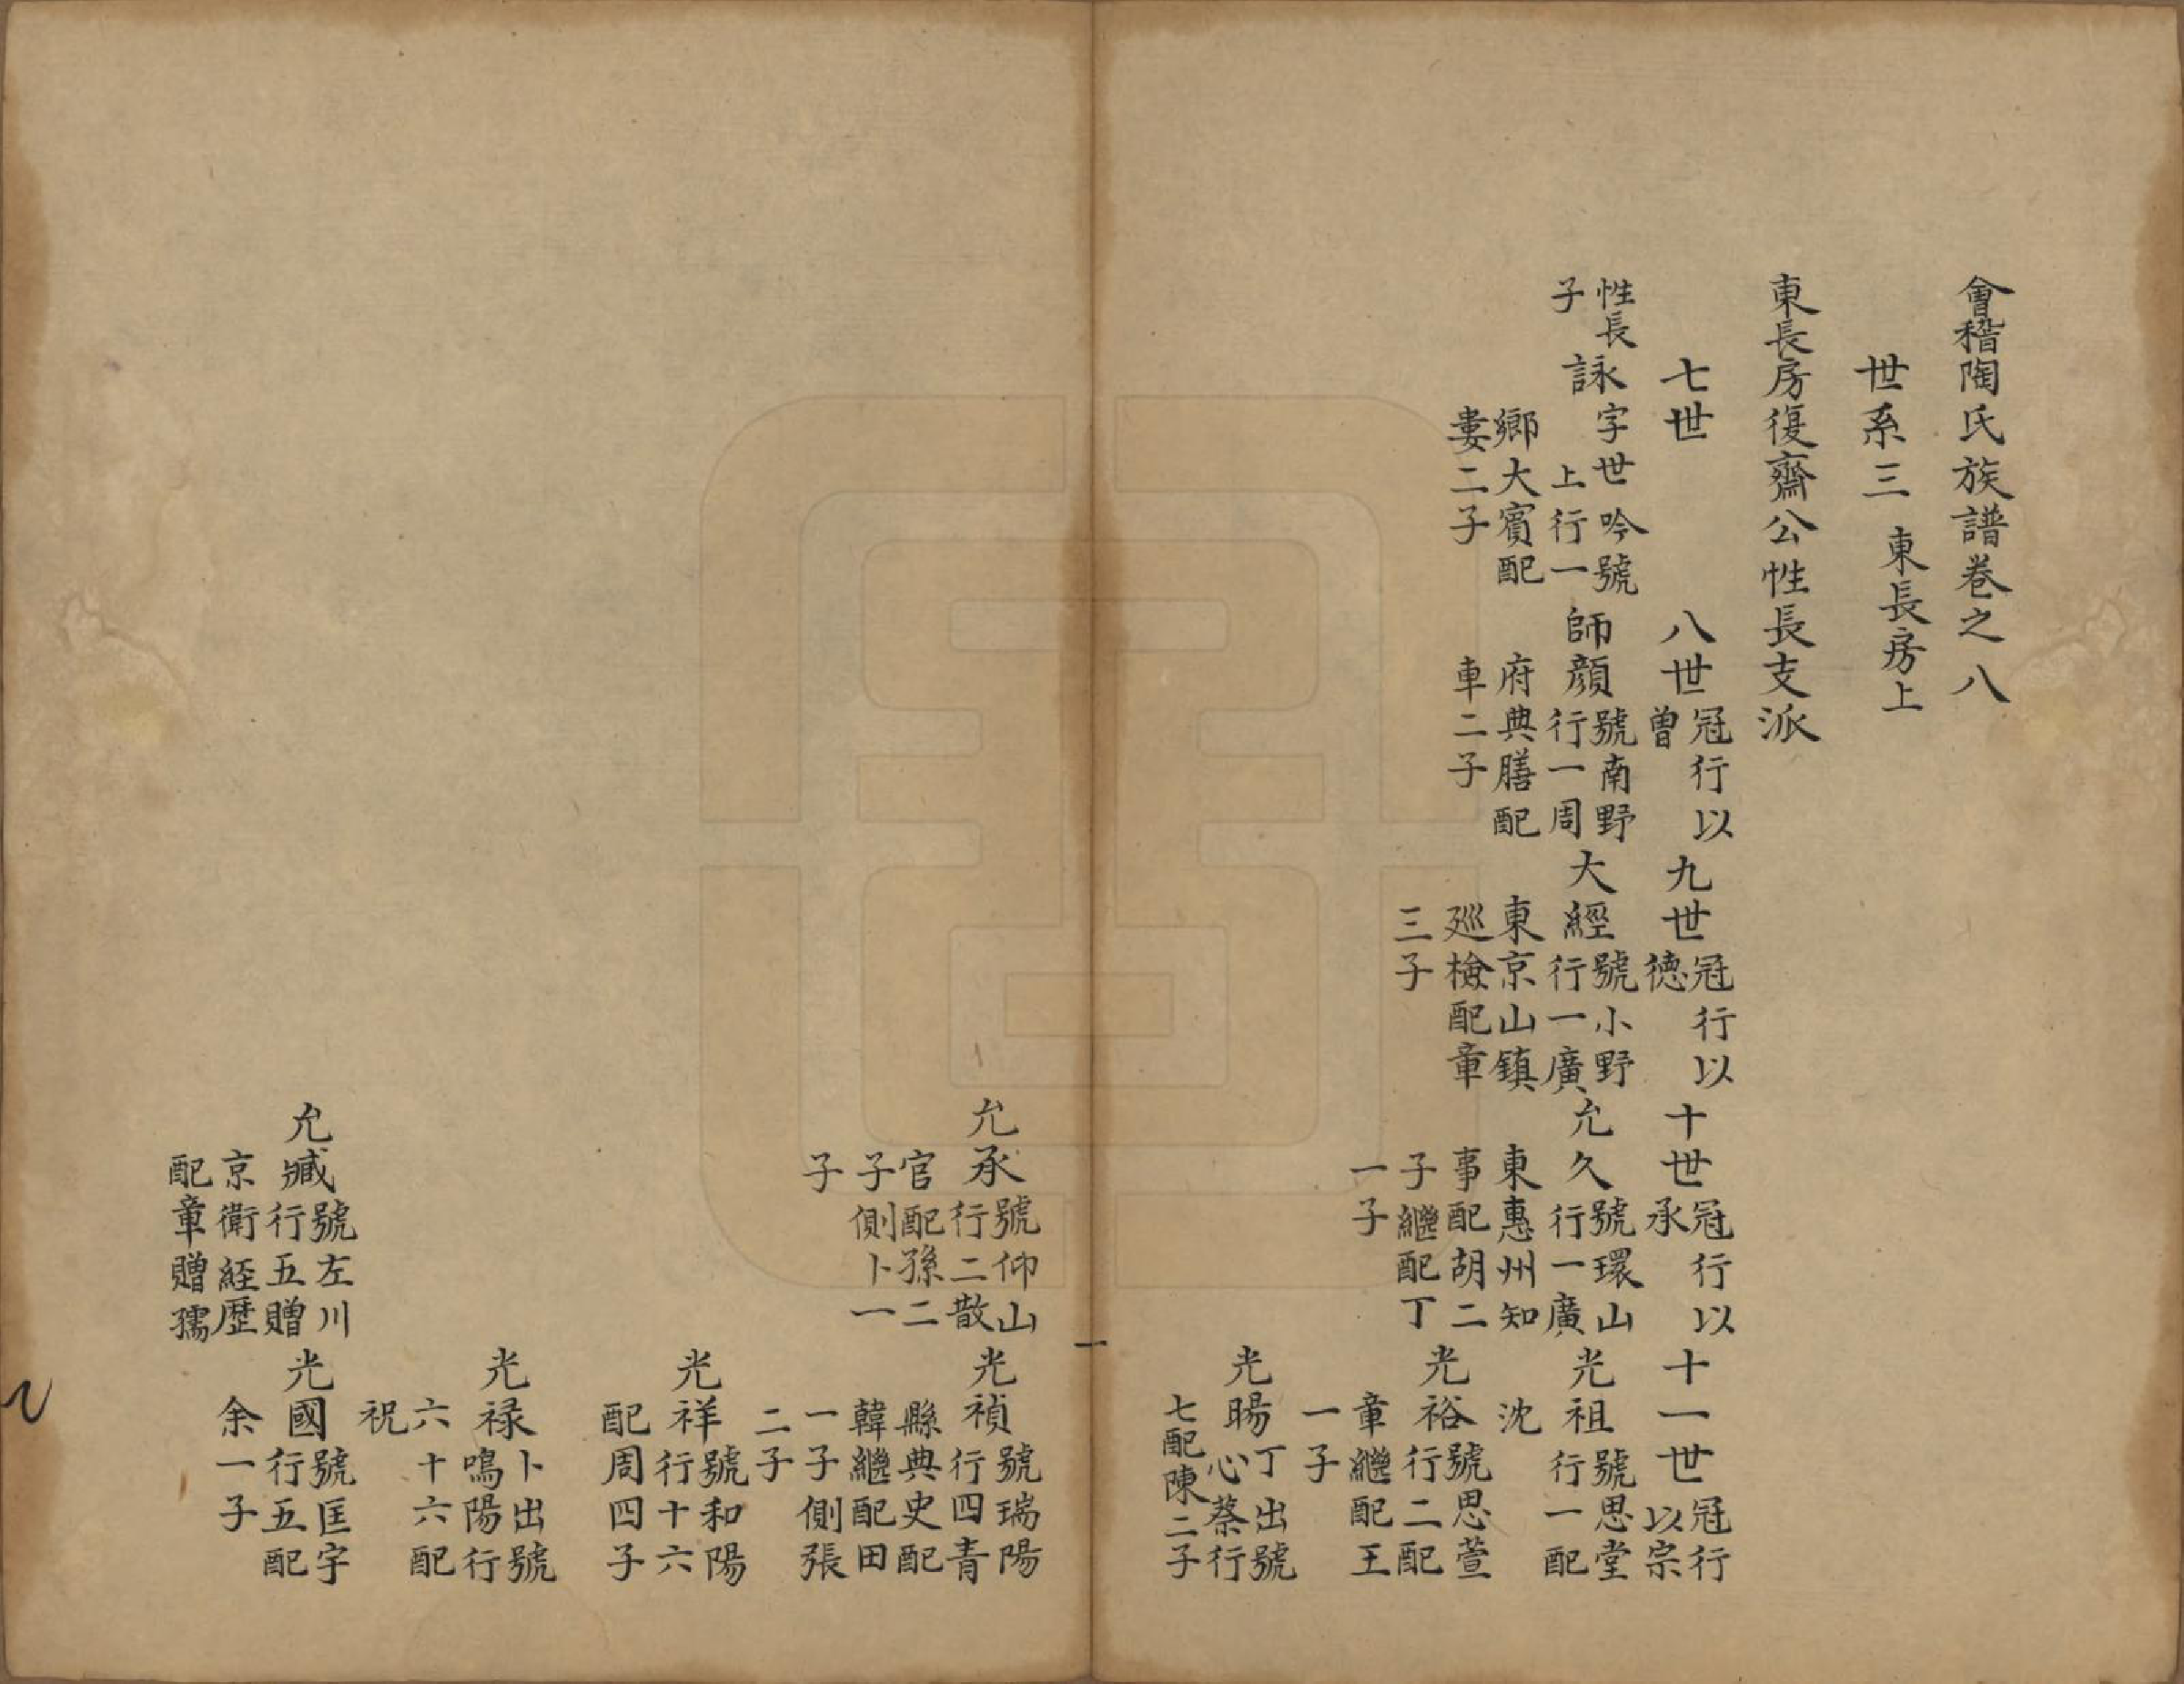 會稽陶氏族譜卷之八
世系三 東長房上
東長房復齋公性長支派
七世
八世 冠行以曾
九世 冠行以德
十世 冠行以承
十一世 冠行以宗
性長子
詠 字世吟號上行一鄉大賓配婁二子
師顔 號南野行一周府典膳配車二子
大經 號小野行一廣東京山鎮廵檢配章三子
允久 號環山行一廣東惠州知事配胡二子繼配丁一子
光祖 號思堂行一配沈
光裕 號思萱行二配章繼配王一子
光暘 丁出號心蔡行七配陳二子
一
允承 號仰山行二散官配孫二子側卜一子
光禎 號瑞陽行四青縣典史配韓繼配田一子側張二子
光祥 號和陽行十六配周四子
光禄 卜出號鳴陽行六十六配祝
允臧 號左川行五贈京衛經歷配章贈孺
光國 號匡宇行五配余一子